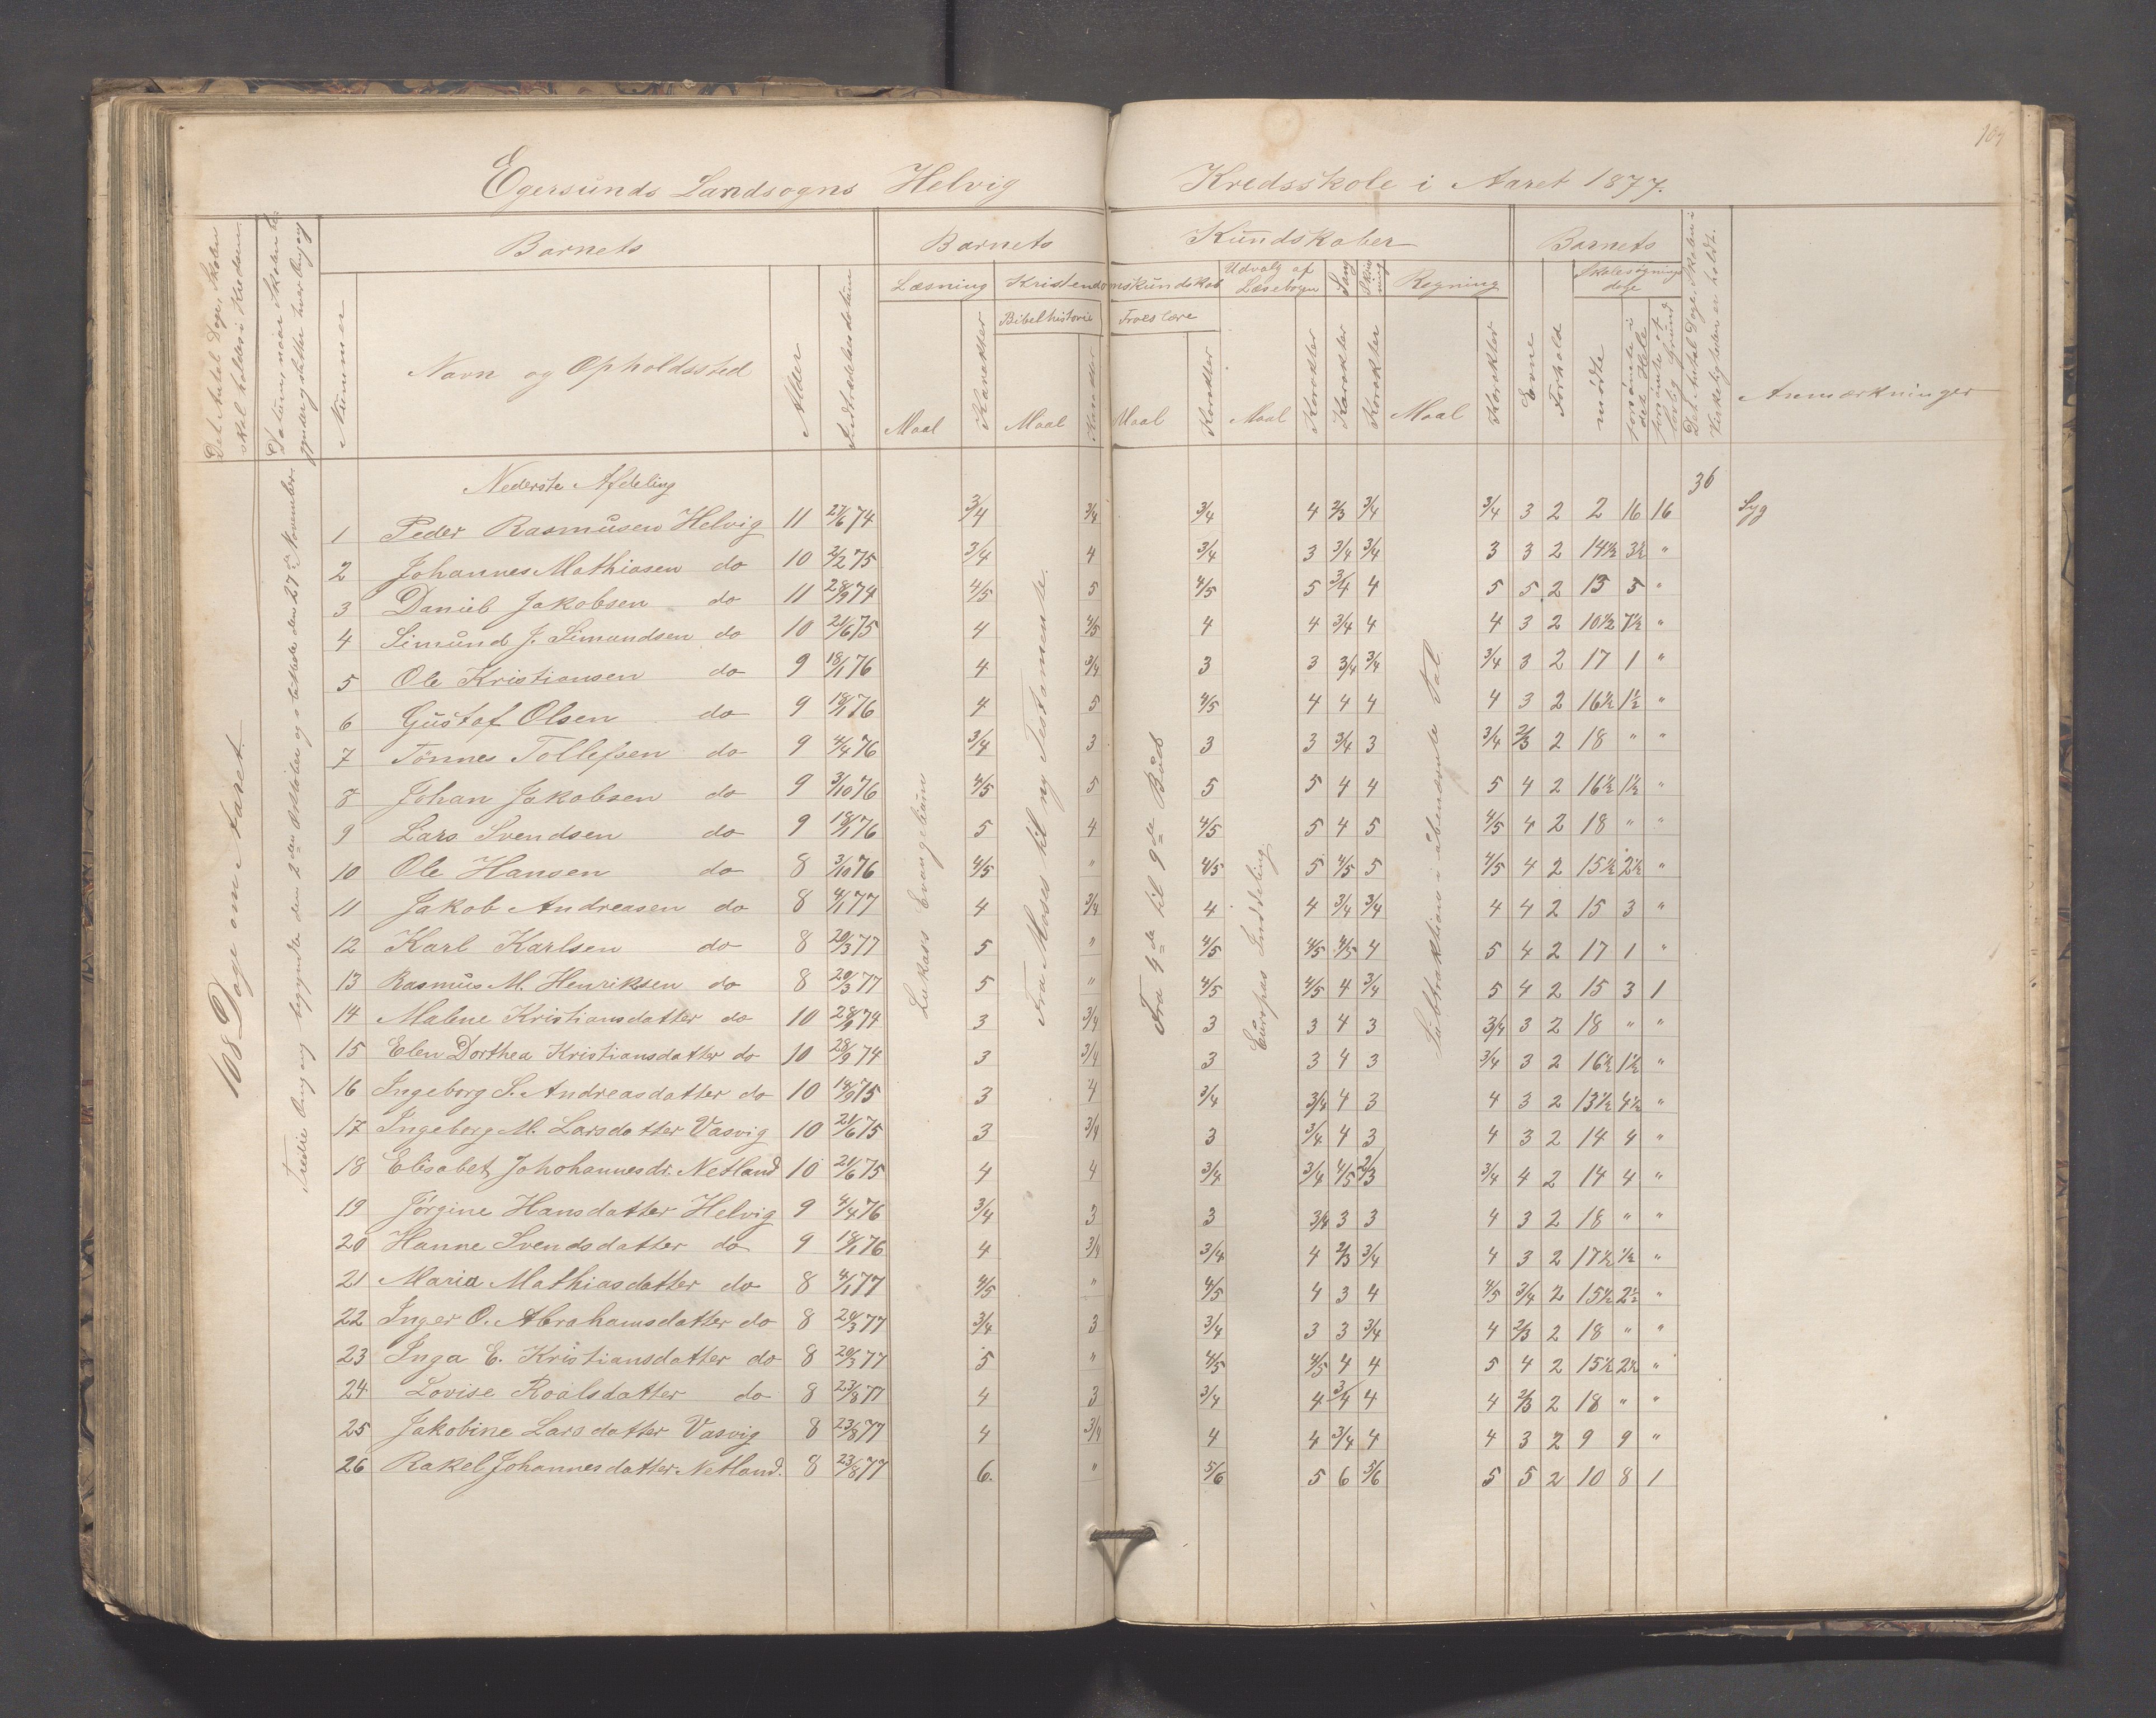 109
Egersunds Landsogns Helvig Kredsskole i Aaret 1877.
Det Antal Dage, Skolen skal holdes i Kredsen.
Datum, naar Skolen begynder og slutter hver Omgang
Barnets
Barnets Kundskaber
Barnets
Det Antal Dage, Skolen i Virkeligheden er holdt.
Nummer
Navn og Opholdssted
Alder
Indtrædelsesdatum
Læsning
Kristendomskundskab
Udvalg af Læsebogen
Sang
Skrivning
Regning
Evne
Forhold
Skolesøgningsdage
Bibelhistorie
Troeslære
mødte
forsømte i det Hele
forsømte af lovlig Grund
Maal Karakter Maal Karakter Maal Karakter Maal Karakter Karakter Karakter Maal Karakter
Anmærkninger
108 Dage om Aaret.
Tredie Omgang begyndte den 2den Oktober og sluttede den 27de November.
Lukas's Evangelium
Fra Moses til ny Testamente.
Fra 4de til 9de Bud
Europas Inddeling
Subtraktion i ubenævnte Tal
Nederste Afdeling
36
1 Peder Rasmusen Helvig 11 21/6 74 3/4 3/4 3/4 4 2/3 3/4 3/4 3 2 2 16 16 Syg
2 Johannes Mathiasen do 10 2/2 75 3/4 4 3/4 3 3/4 3/4 3 3 2 14½ 3½ "
3 Daniel Jakobsen do 11 28/9 74 4/5 5 4/5 5 3/4 4 5 5 2 13 5 "
4 Simund J. Simundsen do 10 21/6 75 4 4/5 4 4 3/4 4 4 3 2 10½ 7½ "
5 Ole Kristiansen do 9 18/1 76 4 3/4 3 3 3/4 3/4 3/4 3 2 17 1 "
6 Gustaf Olsen do 9 18/1 76 4 5 4/5 4 4 4 4 3 2 16½ 1½ "
7 Tønnes Tollefsen do 9 4/4 76 3/4 3 3 3 3/4 3 3/4 2/3 2 18 " "
8 Johan Jakobsen do 9 3/10 76 4/5 5 5 5 4 4 5 4 2 16½ 1½ "
9 Lars Svendsen do 9 18/1 76 5 4 4/5 5 4 5 4/5 4 2 18 " "
10 Ole Hansen do 8 3/10 76 4/5 " 4/5 5 4/5 5 4/5 4 2 15½ 2½ "
11 Jakob Andreasen do 8 4/1 77 4 3/4 4 4 3/4 3/4 4 4 2 15 3 "
12 Karl Karlsen do 8 20/3 77 5 " 4/5 4/5 4/5 4 5 4 2 17 1 "
13 Rasmus M. Henriksen do 8 20/3 77 5 " 4/5 4/5 4 3/4 5 4 2 15 3 1
14 Malene Kristiansdatter do 10 28/9 74 3 3/4 3 3 4 3 3/4 3 2 18 " "
15 Elen Dorthea Kristiansdatter do 10 28/9 74 3 3/4 3 3 4 3 3/4 3 2 16½ 1½ "
16 Ingeborg S. Andreasdatter do 10 14/9 75 3 4 3/4 3/4 4 3 4 3 2 13½ 4½ "
17 Ingeborg M. Larsdatter Vasvig 10 21/6 75 3 3/4 3 3/4 4 3 4 3 2 14 4 "
18 Elisabet Johohannesdr. Netland 10 21/6 75 4 4 3/4 3/4 4/5 2/3 3/4 4 2 14 4 "
19 Jørgine Hansdatter Helvig 9 4/4 76 3/4 3 3 3/4 3 3 4 3 2 18 " "
20 Hanne Svendsdatter do 9 18/1 76 4 3/4 3/4 4 2/3 3/4 4 3 2 17½ ½ "
21 Maria Mathiasdatter do 8 4/1 77 4/5 " 4/5 4 3 4 4/5 3/4 2 15½ 2½ "
22 Inger O. Abrahamsdatter do 8 20/3 77 3/4 3 3/4 3 3 3/4 4 2/3 2 18 " "
23 Inga E. Kristiansdatter do 8 20/3 77 5 " 4/5 4/5 4 4 5 4 2 15½ 2½ "
24 Lovise Roalsdatter do 8 23/8 77 4 3 3/4 4 3/4 4 4 2/3 2 18 " "
25 Jakobine Larsdatter Vasvig 8 23/8 77 4 3/4 4 4 3/4 4 4 3 2 9 9 "
26 Rakel Johannesdatter Netland. 8 23/8 77 6. " 5/6 5 6 5/6 5 5 2 10 8 1